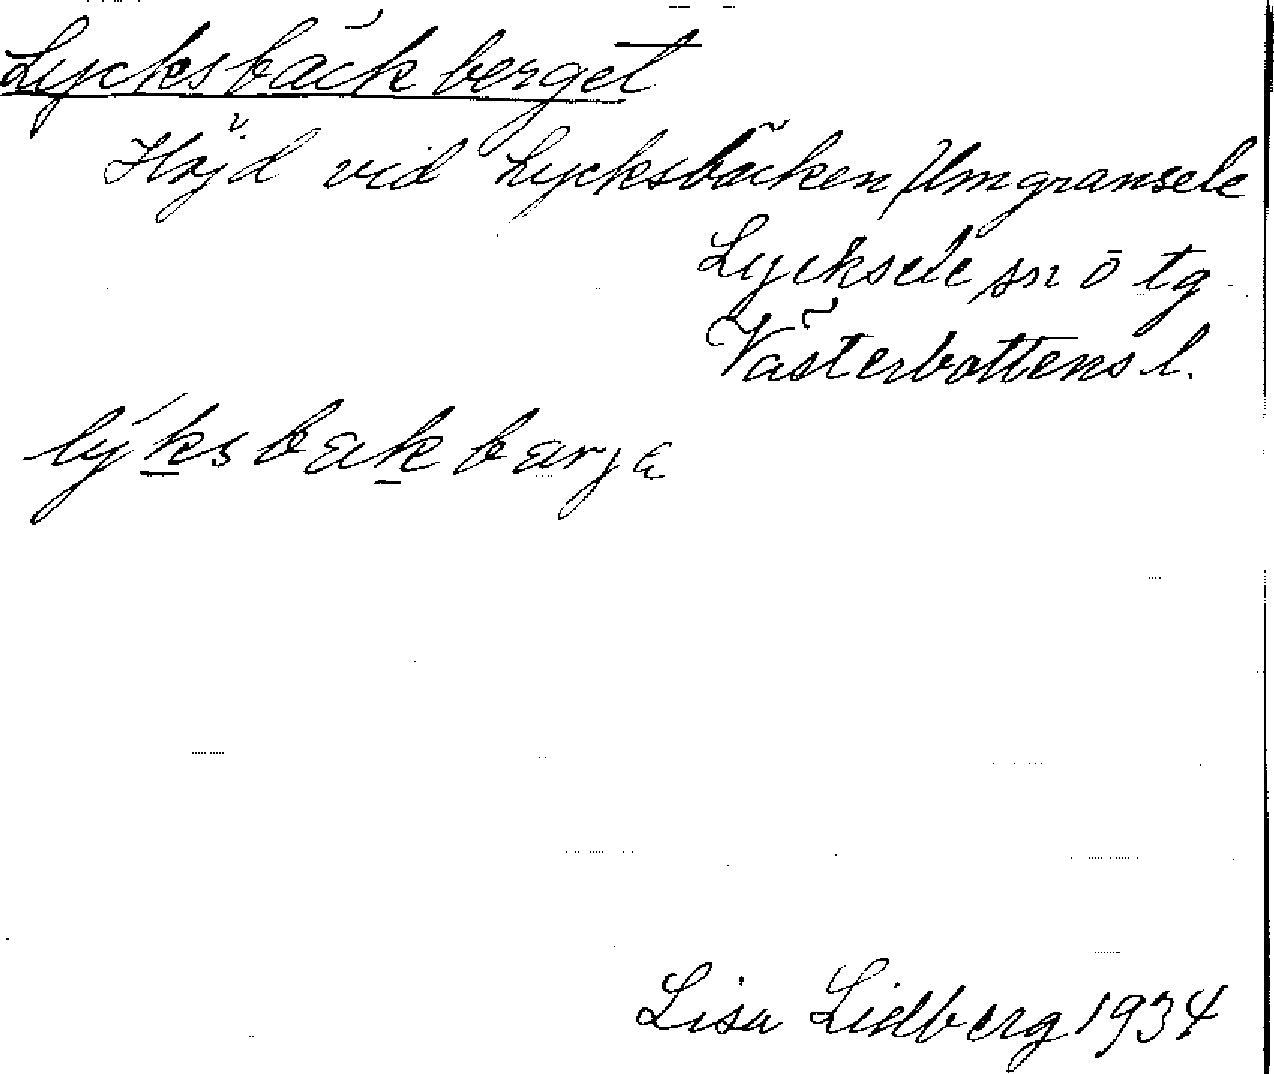 Lycksbäckberget
Höjd vid Lycksbäcken, Umgransele
Lycksele sn o tg
Västerbottens l.
lýksbækbærjɛ
Lisa Lidberg 1934